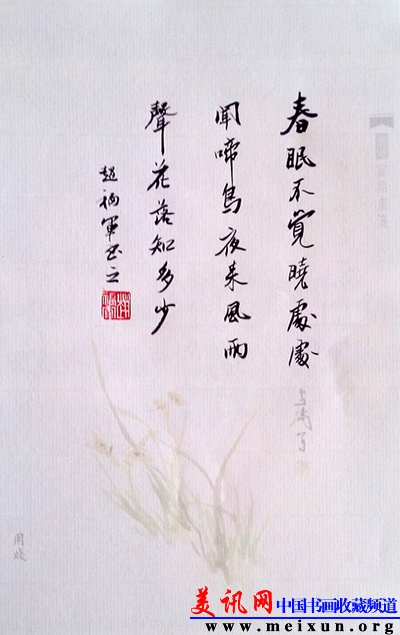 春眠不覺曉處處
聞啼鳥夜来風雨
聲花落知多少
趙福軍书之
美讯网 中国书画收藏频道
www.meixun.org